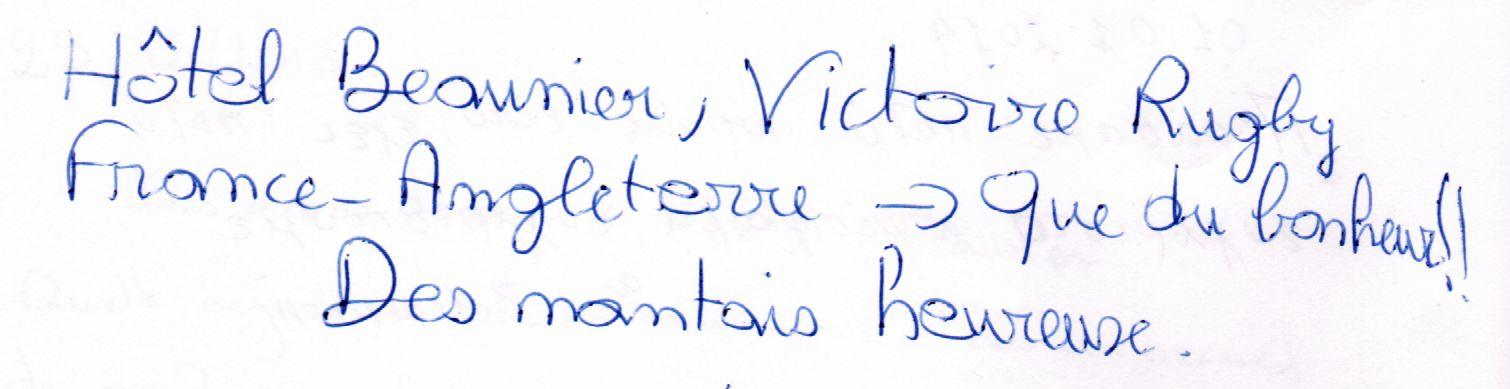 Hôtel Beaunier, Victoire Rugby
France - Angleterre → Que du bonheur!!
Des nantais heureuse.